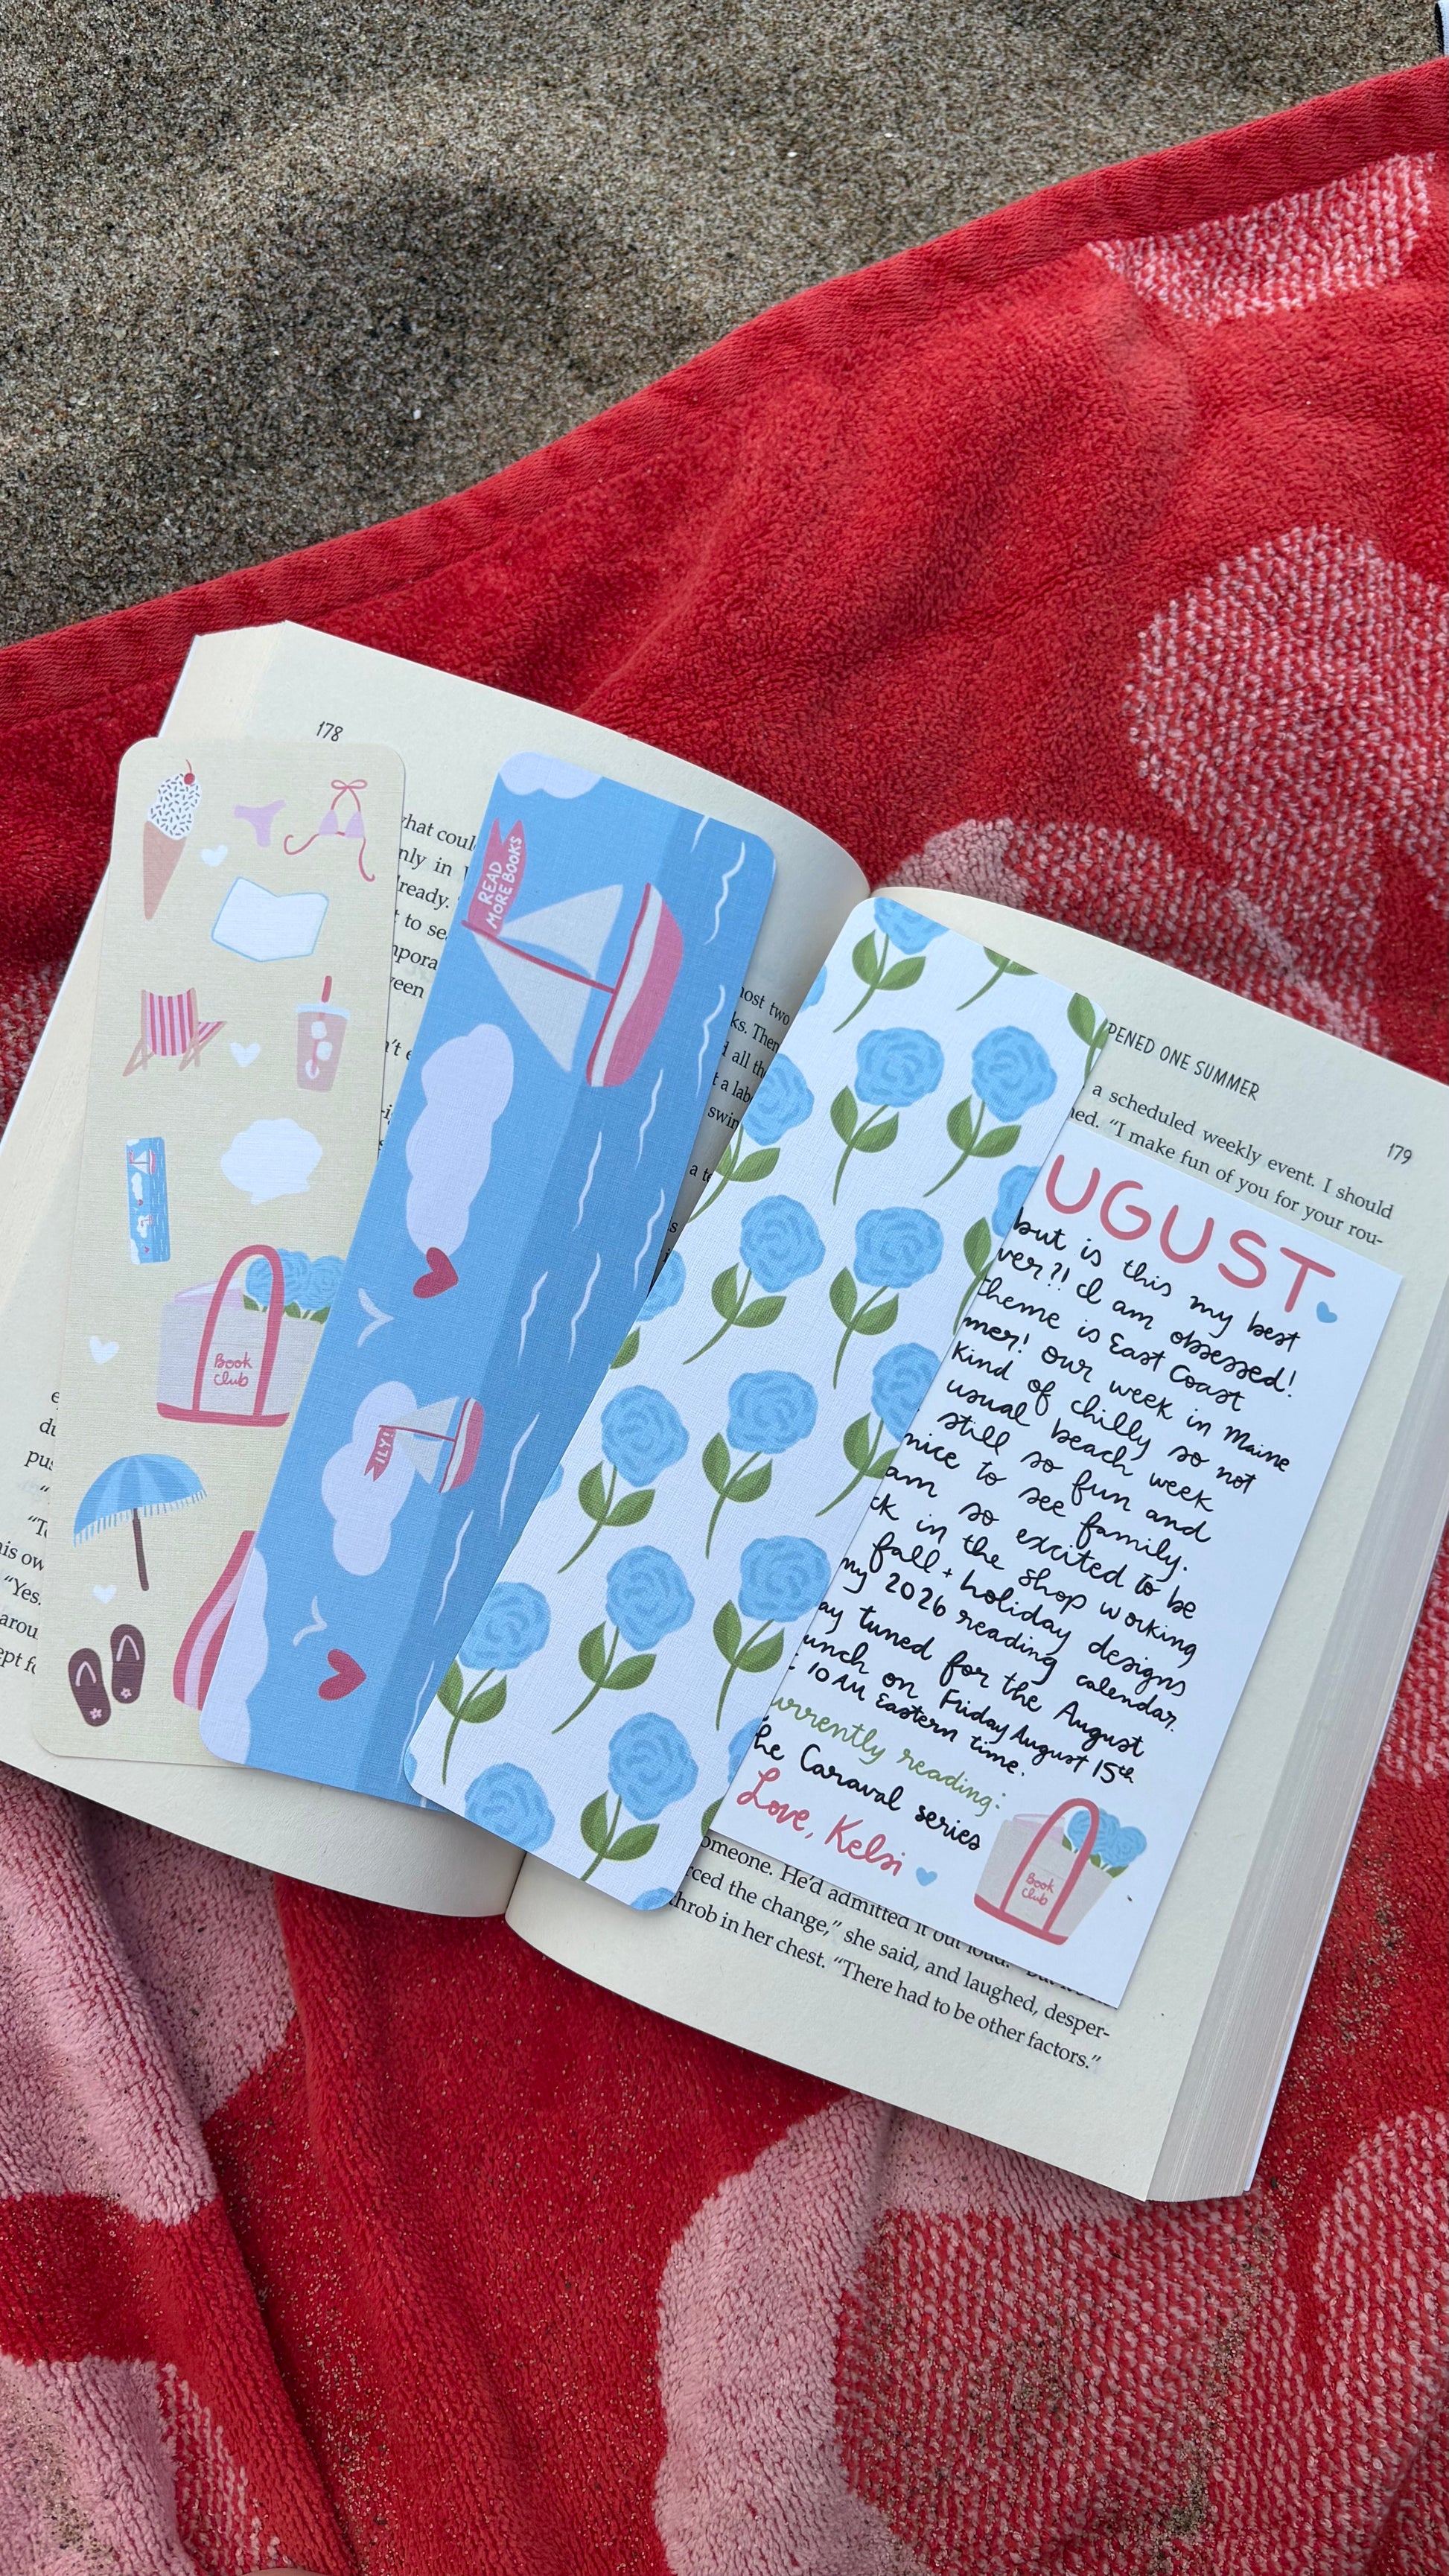 178
what coul
nly in
lready.
t to se
mpora
ween
n't e
e
du
pu
"
"T
his ow
"Yes.
arou
ept fo
most two
ks. Then
d all th
t a lab
swin
a te
Book
Club
READ
MORE BOOKS
ILY!
PENED ONE SUMMER
179
a scheduled weekly event. I should
ned. "I make fun of you for your rou-
UGUST
but is this my best
ver?! I am obsessed!
theme is East Coast
mer! Our week in Maine
kind of chilly so not
usual beach week
still so fun and
nice to see family.
am so excited to be
ck in the shop working
fall + holiday designs
my 2026 reading calendar.
ay tuned for the August
unch on Friday August 15th
10 AM Eastern time.
urrently reading:
he Caraval series
Love, Kelsi
Book
Club
omeone. He'd admitted it out loud. "But
rced the change," she said, and laughed, desper-
throb in her chest. "There had to be other factors."